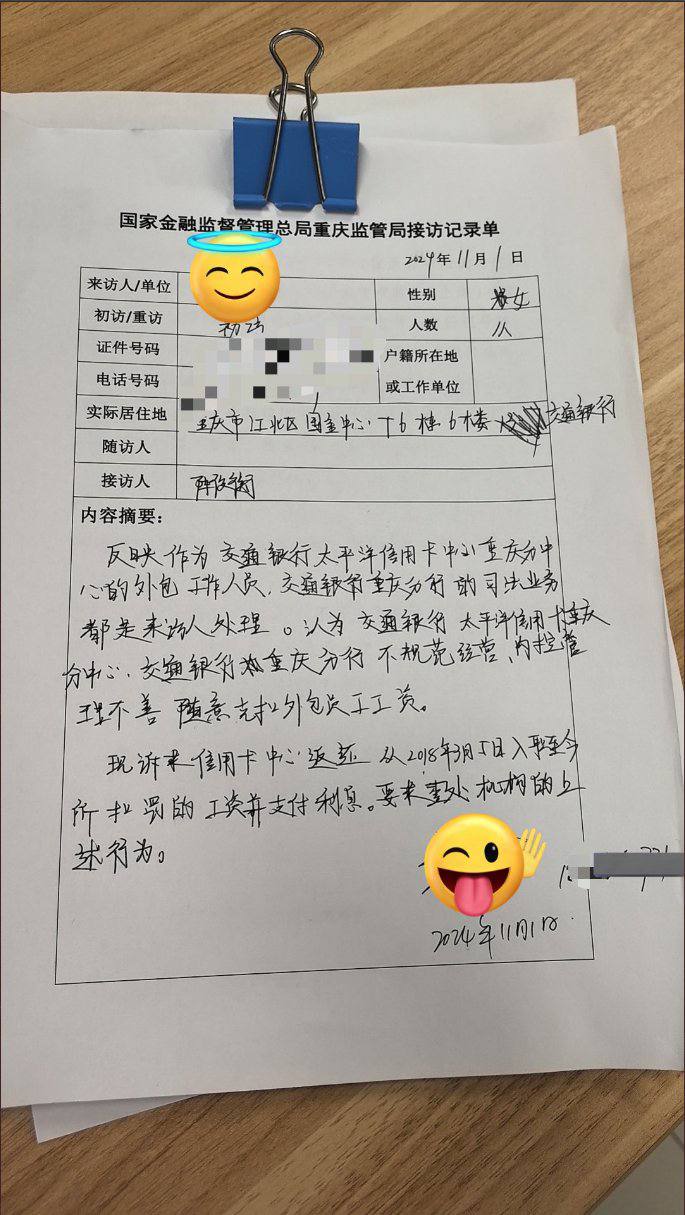 国家金融监督管理总局重庆监管局接访记录单
2024年11月1日
来访人/单位 性别 女
初访/重访 初访 人数
证件号码 户籍所在地
电话号码 或工作单位
实际居住地 重庆市江北区国金中心T6栋6楼 交通银行
随访人
接访人
内容摘要：
反映作为交通银行太平洋信用卡中心重庆分中
心的外包工作人员，交通银行重庆分行的司法业务
都是来访人处理。认为交通银行太平洋信用卡重庆
分中心、交通银行重庆分行不规范经营，内控管
理不善随意克扣外包员工工资。
现诉求信用卡中心返还从2018年3月5日入职至今
所扣罚的工资并支付利息。要求查处机构的上
述行为。
2024年11月1日